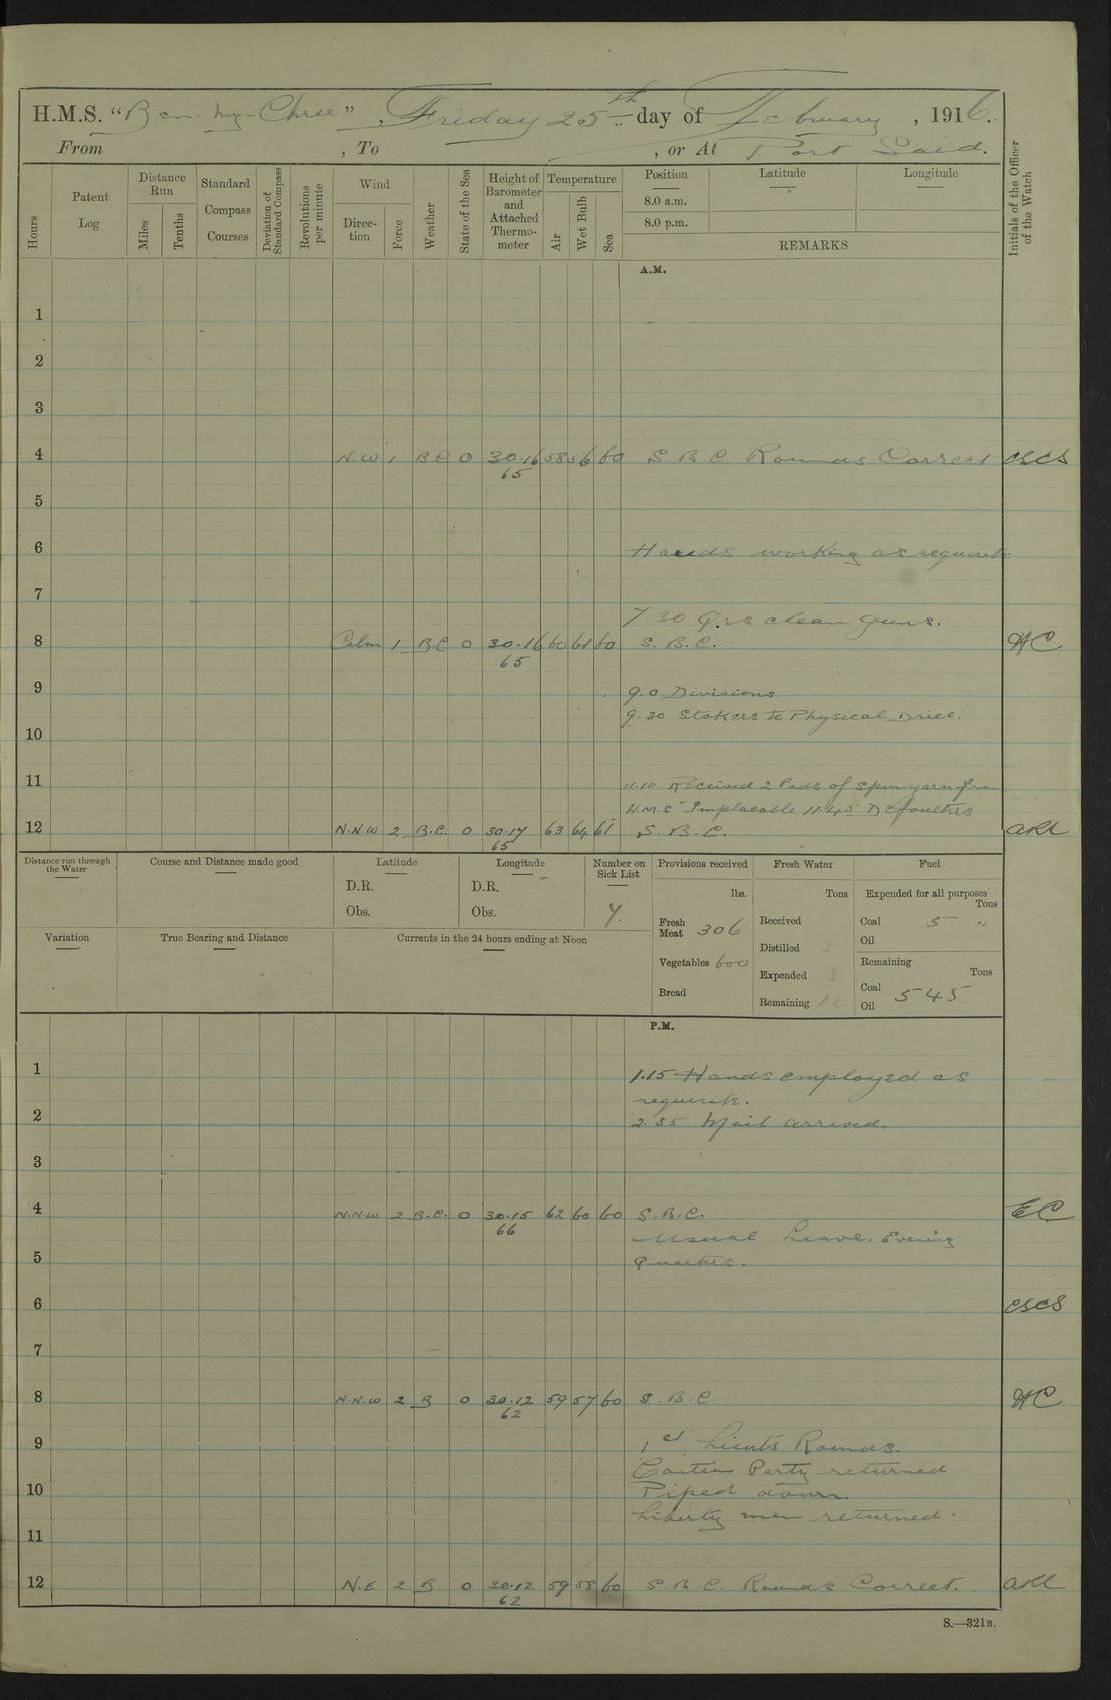 H.M.S. "Ben-my-Chree", Friday 25th day of February, 1916.
From , To , or At Port Said.
Hours
Patent Log
Distance Run
Miles
Tenths
Standard Compass Courses
Deviation of Standard Compass
Revolutions per minute
Wind
Direction
Force
Weather
State of the Sea
Height of Barometer and Attached Thermometer
Temperature
Air
Wet Bulb
Sea
Position
8.0 a.m.
8.0 p.m.
Latitude
Longitude
REMARKS
Initials of the Officer of the Watch
A.M.
1
2
3
4 N.W 1 B C 0 30.16 58 56 60 S B C. Rounds Correct CSCS
65
5
6 Hands working as requisite
7
7.30 Qrs clean guns.
8 Calm 1 B.C 0 30.16 60 61 60 S. B. C. HC
65
9 9.0 Divisions
9.30 Stokers to Physical Drill.
10
11 11.10 Received 2 Pads of Spunyarn from
H.M.S "Implacable 11.45 Defaulters
12 N.N.W 2 B.C. 0 30.17 63 64 61 S. B. C.
65
Distance run through the Water
Course and Distance made good
Latitude
D.R.
Obs.
Longitude
D.R.
Obs.
Number on Sick List
7.
Provisions received
lbs.
Fresh Meat 306
Vegetables 600
Bread
Fresh Water
Tons
Received
Distilled 3
Expended 3
Remaining 12
Fuel
Expended for all purposes
Tons
Coal 5 "
Oil
Remaining
Tons
Coal 545
Oil
Variation
True Bearing and Distance
Currents in the 24 hours ending at Noon
P.M.
1 1.15 Hands employed as
requisite.
2 2.35 Mail arrived.
3
4 N.N.W 2 B.C. 0 30.15 62 60 60 S.B.C. EC
66
Usual Leave. Evening
5 Quarters.
6 CSCS
7
8 N.N.W 2 B 0 30.12 59 57 60 S. B. C. HC
62
9 1st Lieut's Rounds.
Canteen Party returned
10 Piped down.
Liberty men returned.
11
12 N.E 2 B 0 30.12 59 58 60 S B C. Rounds Correct.
62
S.—321B.